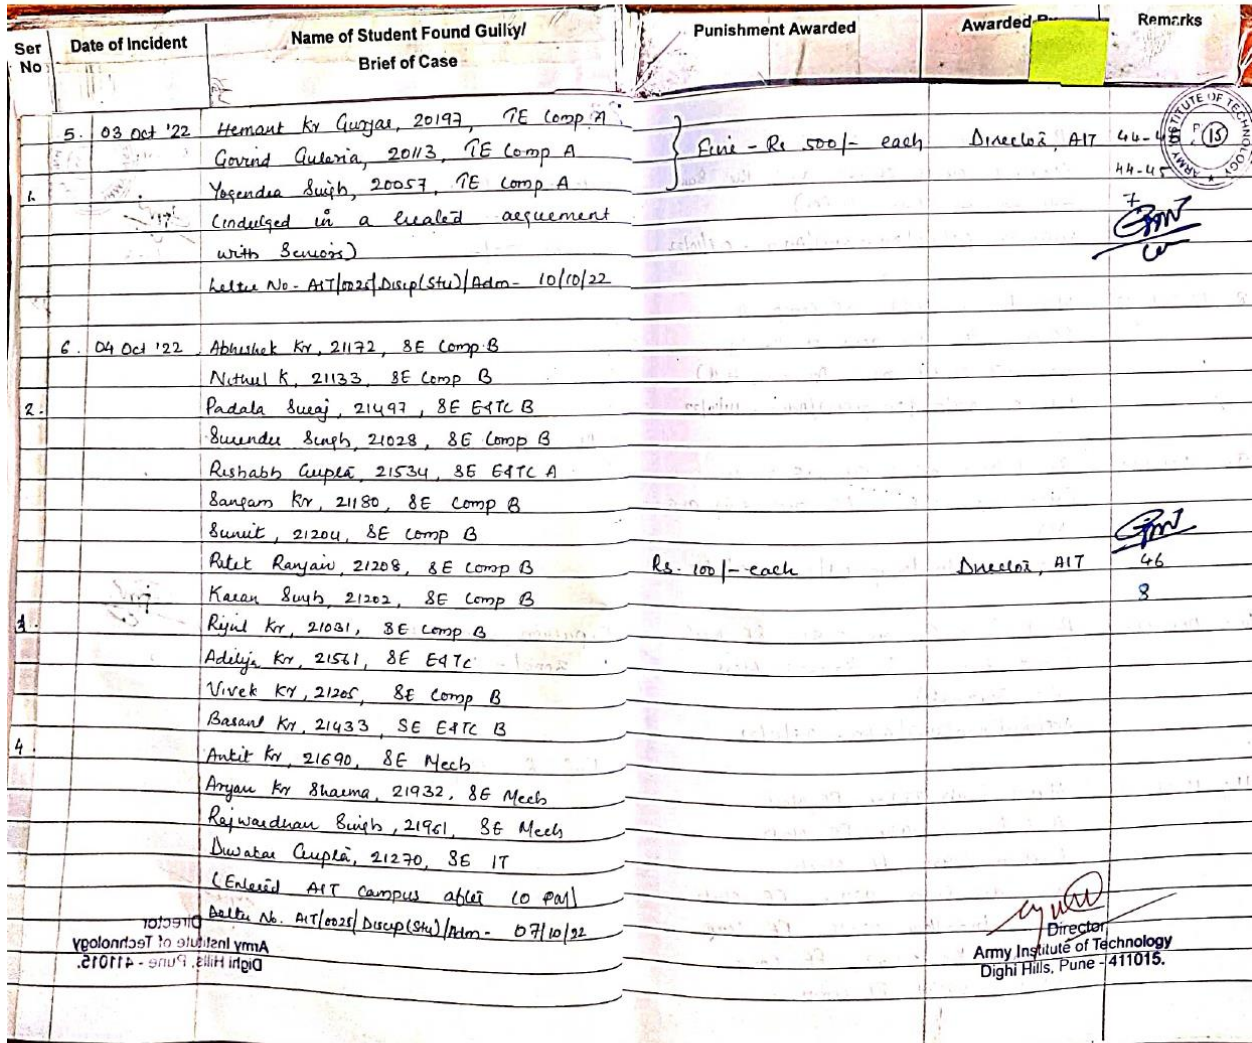 Ser No
Date of Incident
Name of Student Found Guilty/
Brief of Case
Punishment Awarded
Awarded
Remarks
5. 03 Oct '22 Hemant Kr Gurjar, 20197, TE Comp A
Govind Guleria, 20113, TE Comp A
Yogendra Singh, 20057, TE Comp A
(indulged in a heated arguement
with Seniors)
Letter No - AIT/0025/Discp(Stu)/Adm - 10/10/22
Fine - Rs 500/- each
Director, AIT
44-45
7
ARMY INSTITUTE OF TECHNOLOGY
15
1.
6. 04 Oct '22 Abhishek Kr, 21172, SE Comp B
Nithul K, 21133, SE Comp B
2.
Padala Suraj, 21497, SE E&TC B
Surender Singh, 21028, SE Comp B
Rishabh Gupta, 21534, SE E&TC A
Sangam Kr, 21180, SE Comp B
Sumit, 21204, SE Comp B
Ratek Ranjan, 21208, SE Comp B
Rs. 100/- each
Director, AIT
46
8
Karan Singh, 21202, SE Comp B
3.
Rijul Kr, 21031, SE Comp B
Aditya Kr, 21561, SE E&TC
Vivek Kr, 21205, SE Comp B
Basant Kr, 21433, SE E&TC B
4.
Ankit Kr, 21690, SE Mech
Aryan Kr Sharma, 21932, SE Mech
Rajwardhan Singh, 21961, SE Mech
Diwakar Gupta, 21270, SE IT
(Entered AIT campus after 10 PM)
Letter No. AIT/0025/Discp(Stu)/Adm - 07/10/22
Director
Army Institute of Technology
Dighi Hills, Pune - 411015.
Director
Army Institute of Technology
Dighi Hills, Pune - 411015.